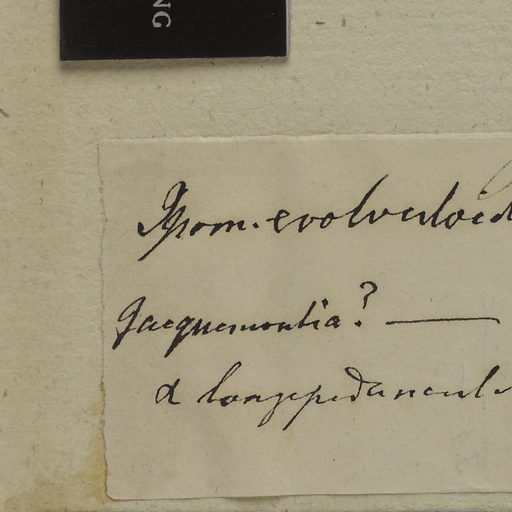 NG
Ipom. evolvuloid
Jacquemontia? —
α longepeduncul